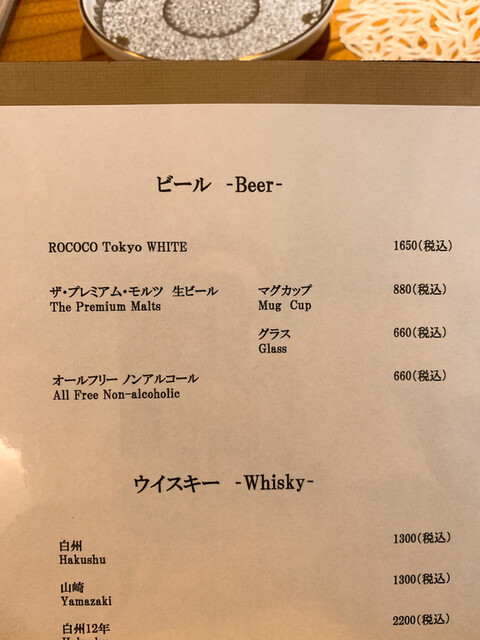 ビール -Beer-
ROCOCO Tokyo WHITE 1650(税込)
ザ・プレミアム・モルツ 生ビール マグカップ 880(税込)
The Premium Malts Mug Cup
グラス 660(税込)
Glass
オールフリー ノンアルコール 660(税込)
All Free Non-alcoholic
ウイスキー -Whisky-
白州 1300(税込)
Hakushu
山崎 1300(税込)
Yamazaki
白州12年 2200(税込)